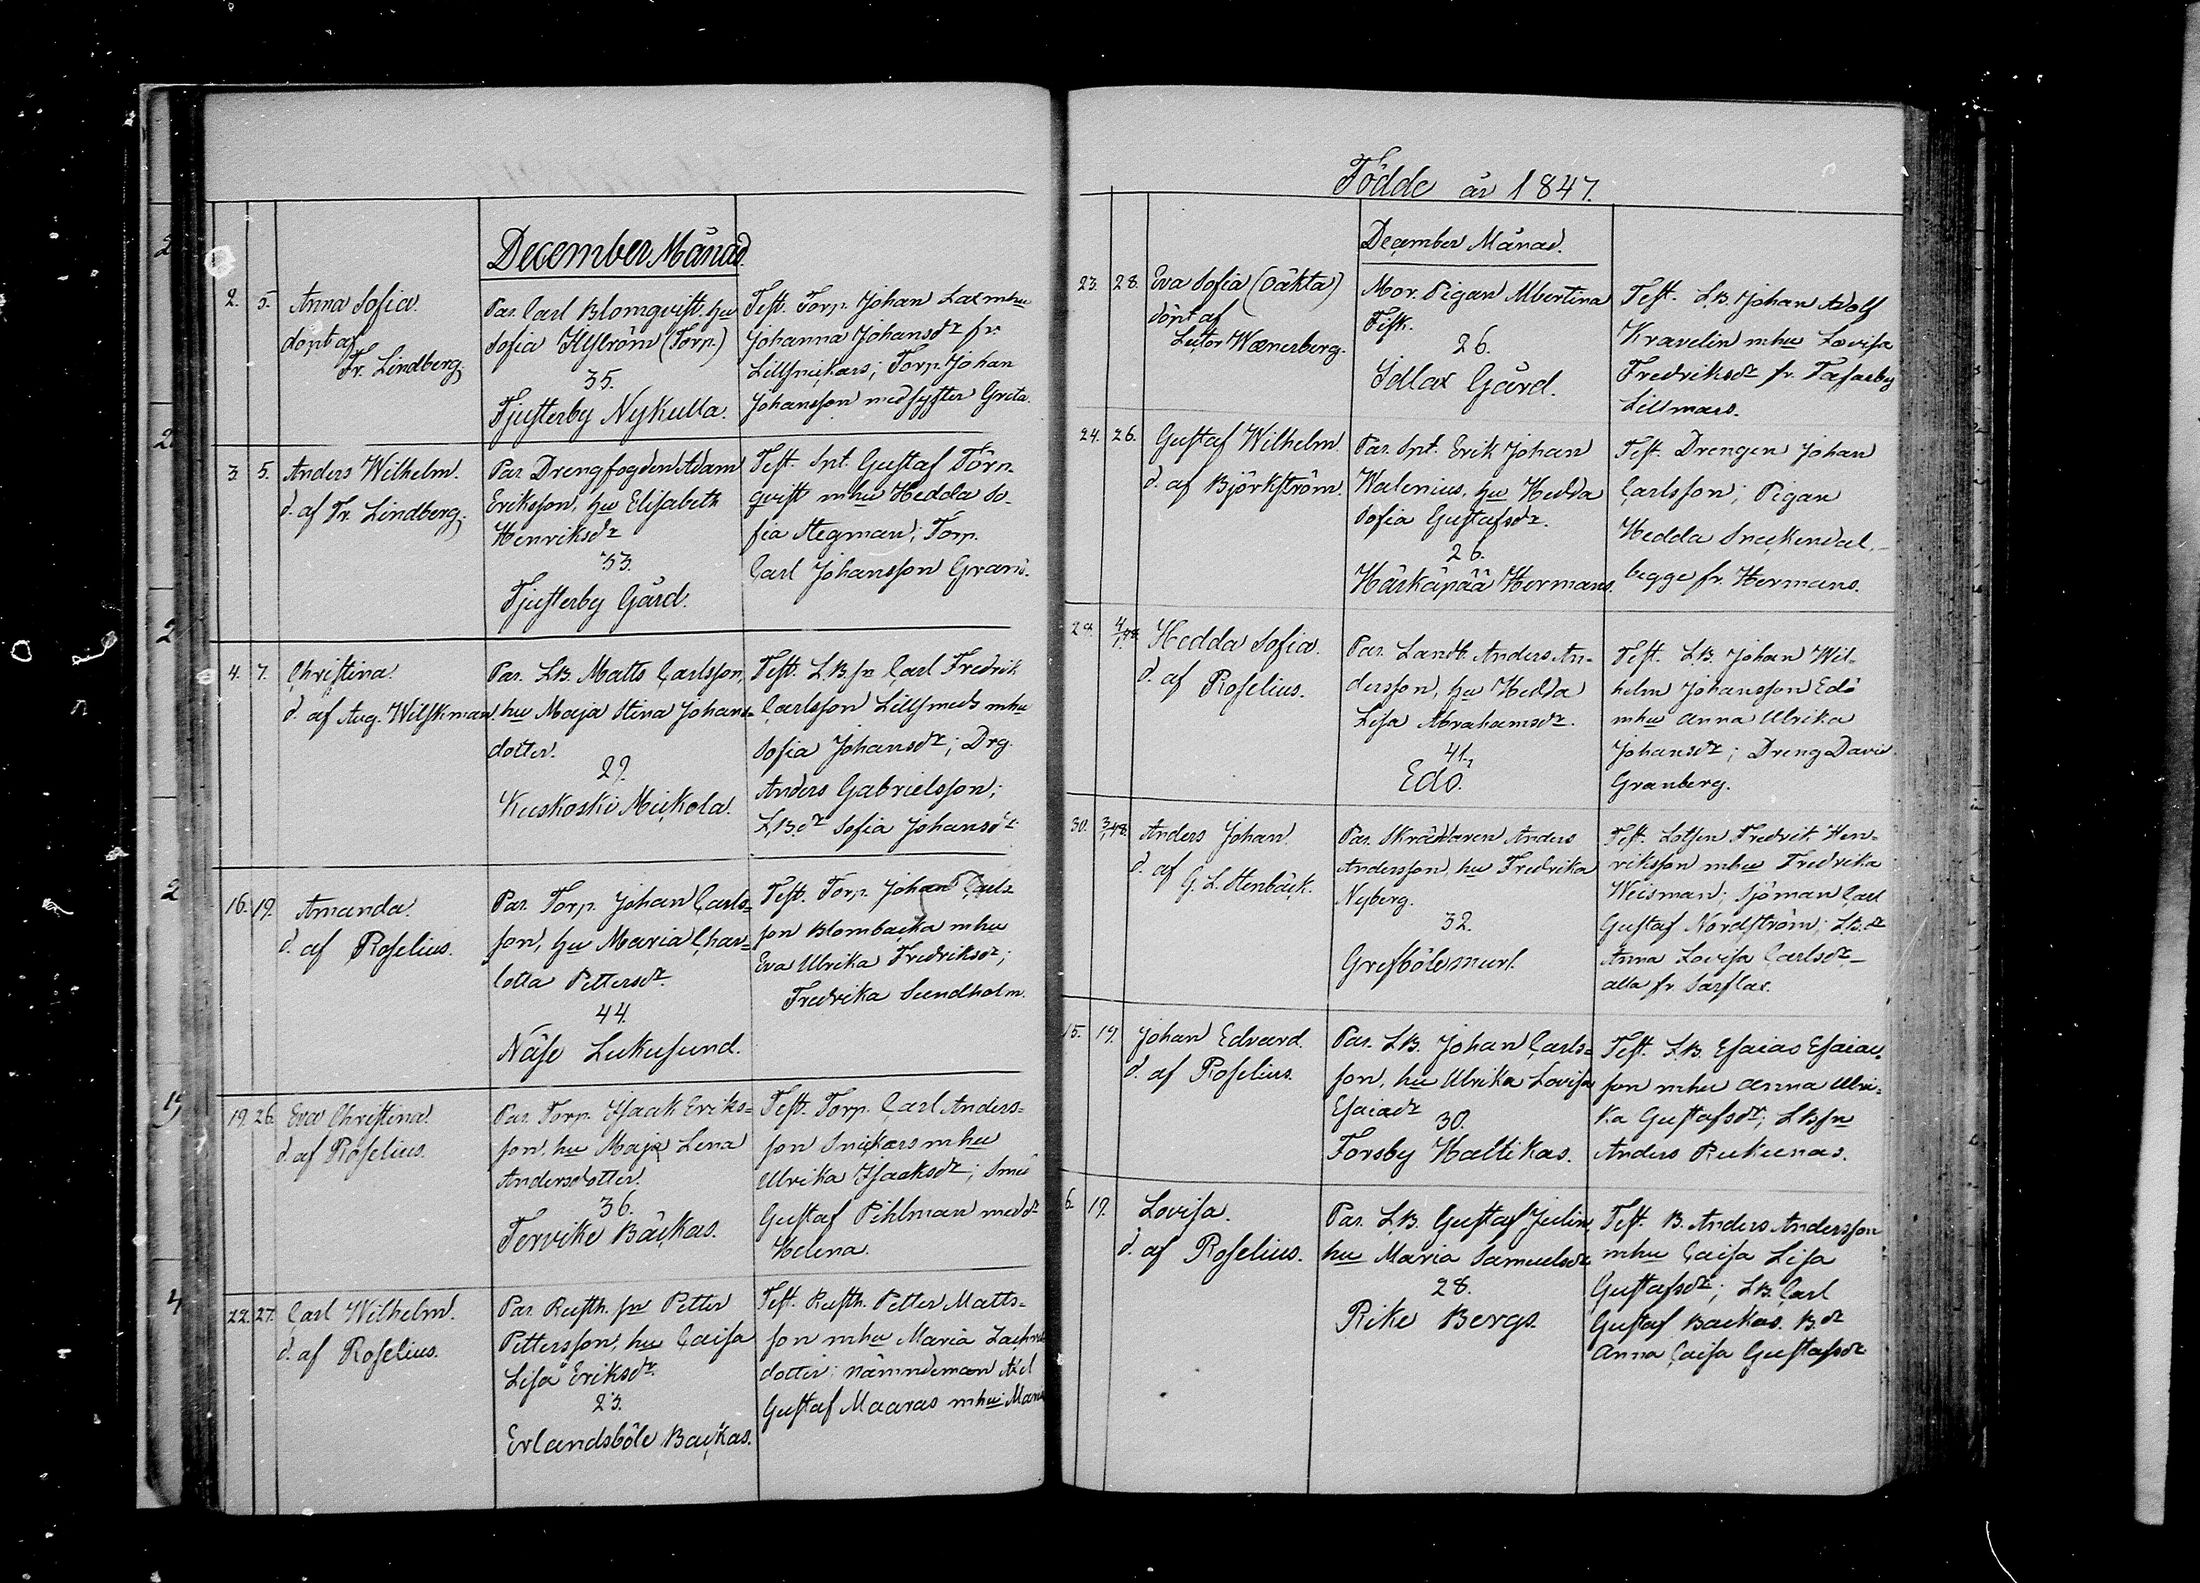 December Månad.
2. 5. Anna Sofia.
döpt af
Fr. Lindberg.
Par. Carl Blomqvist, hu
Sofia (Torp.)
35.
Tjusterby Nykulla.
Test. Torp. Johan Lax mhu
Johanna Johansdr fr.
Lillsnickars; Torp. Johan
Johansson med syster Greta.
3. 5. Anders Wilhelm.
d. af Fr. Lindberg.
Par. Drengfogden Adam
Eriksson, hu Elisabeth
Henriksdr
33.
Tjusterby Gård.
Test. Snt. Gustaf Törn-
qvist mhu Hedda So-
fia Stegman; Torp.
Carl Johansson
4. 7. Christina.
d. af Aug. Wilskman.
Par. LB. Matts Carlsson,
hu Maja Stina Johans-
dotter.
29.
Kuskoski Mickola.
Test. LB.sn Carl Fredrik
Carlsson Lillsmeds mhu
Sofia Johansdr; Drg.
Anders Gabrielsson;
LB.dr Sofia Johansdr.
16. 19. Amanda.
d. af Roselius.
Par. Torp. Johan Carls-
son, hu Maria Char-
lotta Pettersdr.
44.
Näse Lukusund.
Test. Torp. Johan Carls-
son Blombacka mhu
Eva Ulrika Fredriksdr;
Fredrika Sundholm.
19. 26. Eva Christina.
d. af Roselius.
Par. Torp. Isaak Eriks-
son, hu Maja Lena
Andersdotter.
36.
Tervike Bäckas.
Test. Torp. Carl Anders-
son Snickars mhu
Ulrika Isaaksdr; Smed
Gustaf Pihlman med dr
Helena.
22. 27. Carl Wilhelm.
d. af Roselius.
Par. Rusth. sn Petter
Pettersson, hu Caisa
Lisa Eriksdr.
23.
Erlandsböle Backas.
Test. Rusth. Petter Matts-
son mhu Maria
dotter; nämndeman Axel
Gustaf Maaras mhu Maria
Födde år 1847.
December Månad.
23. 28. Eva Sofia (oäkta)
döpt af
Lector Wænerberg.
Mor. Pigan Albertina
Fisk.
26.
Idlax Gård.
Test. LB. Johan Adolf
Kravelin mhu Lovisa
Fredriksdr fr. Tasarby
Lillmars.
24. 26. Gustaf Wilhelm.
d. af Björkström.
Par. Snt. Erik Johan
Walenius, hu Hedda
Sofia Gustafsdr.
26.
Härkäpää Hermans.
Test. Drengen Johan
Carlsson; Pigan
Hedda Sneckendal,
begge fr. Hermans.
29. 4/1 48. Hedda Sofia.
d. af Roselius.
Par. Landb. Anders An-
dersson, hu Hedda
Lisa Abrahamsdr.
41.
Edö.
Test. LB. Johan Wil-
helm Johansson Edö
mhu Anna Ulrika
Johansdr; Dreng David
Granberg.
30. 3/1 48. Anders Johan.
d. af G. L. Stenbäck.
Par. Skräddaren Anders
Andersson, hu Fredrika
Nyberg.
32.
Grefböle murl.
Test. Lotsen Fredrik Hen-
riksson mhu Fredrika
Weisman; Sjöman Carl
Gustaf Nordström; LB.dr
Anna Lovisa Carlsdr
alla fr. Sarflax.
15. 19. Johan Edvard.
d. af Roselius.
Par. LB. Johan Carls-
son, hu Ulrika Lovisa
Esaiadr
30.
Forsby Haltikas.
Test. LB. Esaias Esaias-
son mhu Anna Ulri-
ka Gustafsdr; LBsn
Anders Rukunas.
6. 19. Lovisa.
d. af Roselius.
Par. LB. Gustaf Julin,
hu Maria Samuelsdr
28.
Rike Bergs.
Test. B. Anders Andersson
mhu Caisa Lisa
Gustafsdr; LB. Carl
Gustaf Backas. B.dr
Anna Caisa Gustafsdr